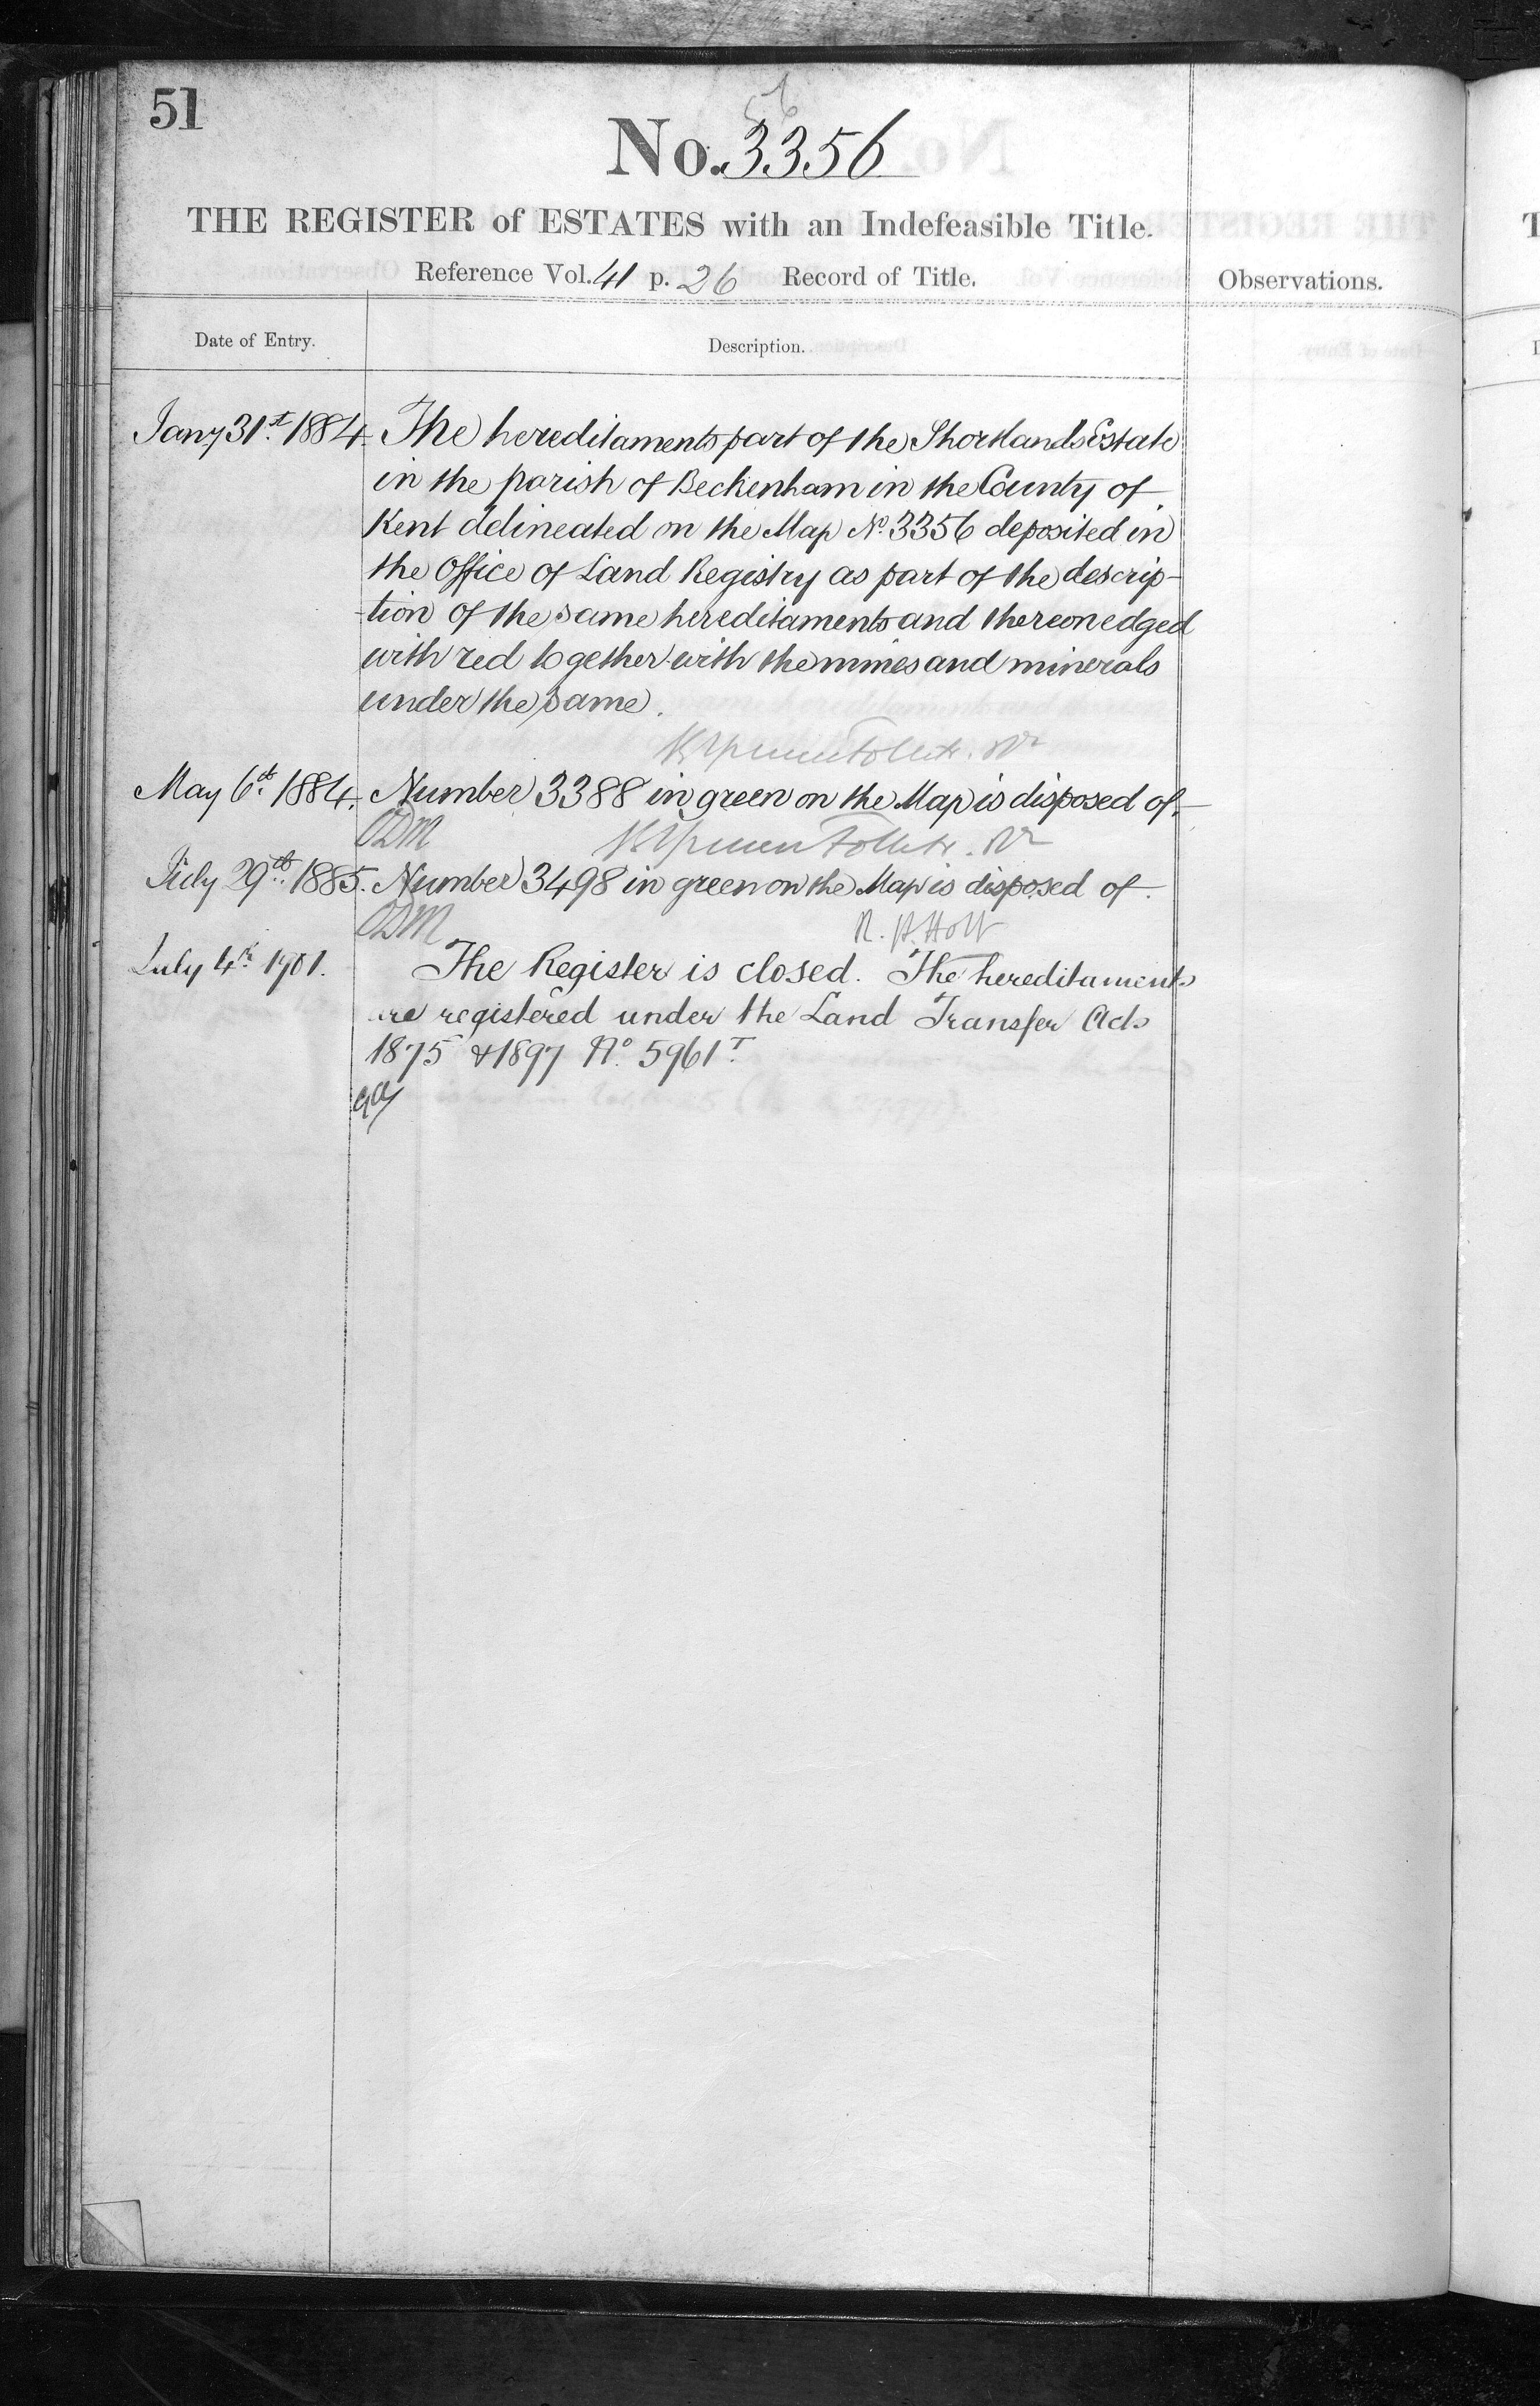 51
No. 3356
THE REGISTER of ESTATES with an Indefeasible Title.
Reference Vol. 41 p. 26 Record of Title.
Observations.
Date of Entry.
Description.
Jany 31st 1884. The hereditaments part of the Shortlands Estate
in the parish of Beckenham in the County of
Kent delineated on the Map No. 3356 deposited in
the Office of Land Registry as part of the descrip-
-tion of the same hereditaments and thereon edged
with red together with the mines and minerals
under the same.
May 6th 1884. Number 3388 in green on the Map is disposed of.
July 29th 1885. Number 3498 in green on the Map is disposed of.
R. H. Holt
July 4th 1901. The Register is closed. The hereditaments
are registered under the Land Transfer Acts
1875 & 1897 No. 5961